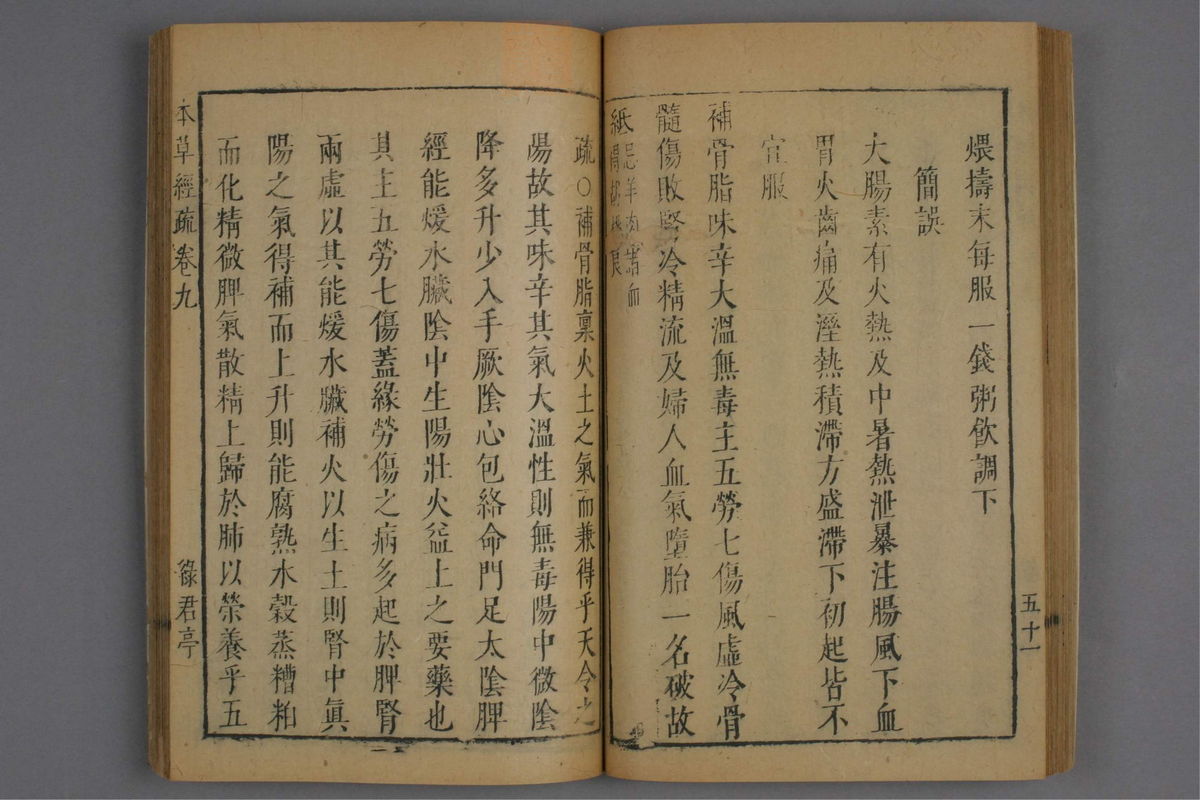 煨擣末每服一錢粥飲調下
簡誤
大腸素有火熱及中暑熱泄暴注腸風下血
胃火齒痛及溼熱積滯方盛滯下初起皆不
宜服
補骨脂味辛大溫無毒主五勞七傷風虛冷骨
髓傷敗腎冷精流及婦人血氣墮胎一名破故
紙
忌羊肉諸血
五十一
疏○補骨脂稟火土之氣而兼得乎天令之
陽故其味辛其氣大溫性則無毒陽中微陰
降多升少入手厥陰心包絡命門足太陰脾
經能煖水臟陰中生陽壯火益土之要藥也
其主五勞七傷蓋緣勞傷之病多起於脾腎
兩虛以其能煖水臟補火以生土則腎中眞
陽之氣得補而上升則能腐熟水穀蒸糟粕
而化精微脾氣散精上歸於肺以榮養乎五
本草經疏卷九
綠君亭